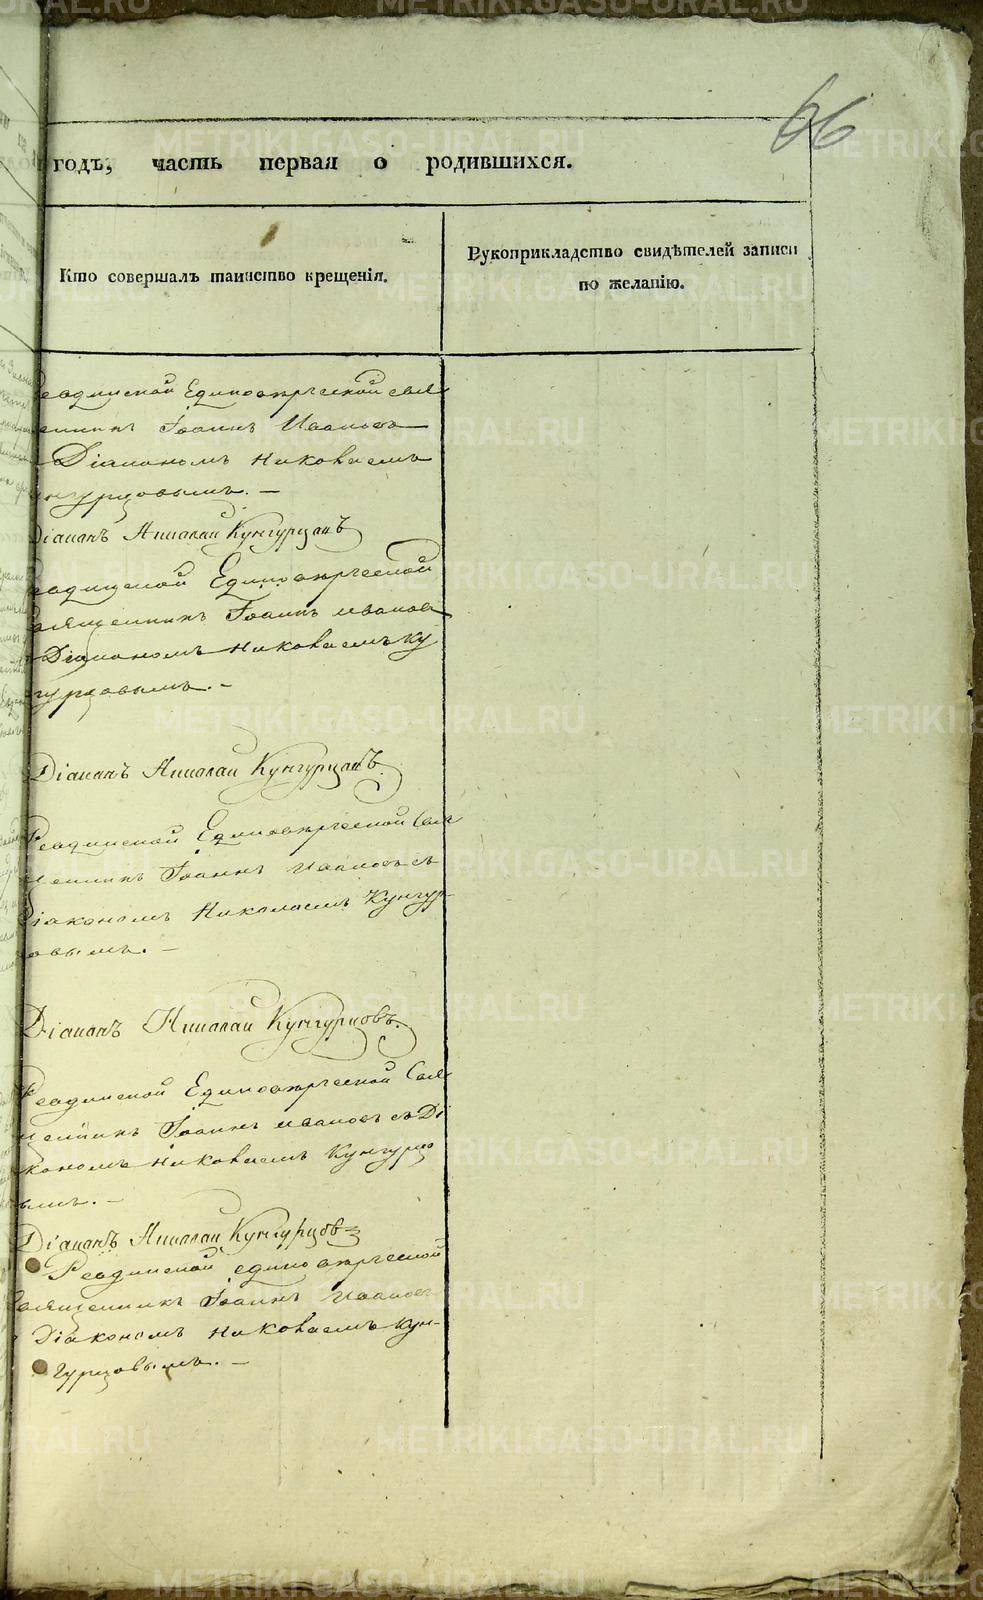 66
годъ, часть первая о родившихся.
Кто совершалъ таинство крещенія.
Рукоприкладство свидѣтелей записи
по желанію.
Единовѣрческой свя
Іоаннъ Ивановъ
Діакономъ Николаемъ
нгурцовымъ. —
Діаконъ Николай Кунгурцовъ
Единовѣрческой
Іоаннъ Ивановъ
Діакономъ Николаемъ Ку
гурцовымъ. —
Діаконъ Николай Кунгурцовъ
Единовѣрческой Свя
щенникъ Іоаннъ Ивановъ съ
Діакономъ Николаемъ Кунгур
овымъ. —
Діаконъ Николай Кунгурцовъ.
Единовѣрческой Свя
щенникъ Іоаннъ Ивановъ съ Ді
кономъ Николаемъ Кунгурцо
ымъ. —
Діаконъ Николай Кунгурцовъ
единовѣрческой
священникъ Іоаннъ Ивановъ
Діакономъ Николаемъ Кун-
гурцовымъ. —
METRIKI.GASO-URAL.RU